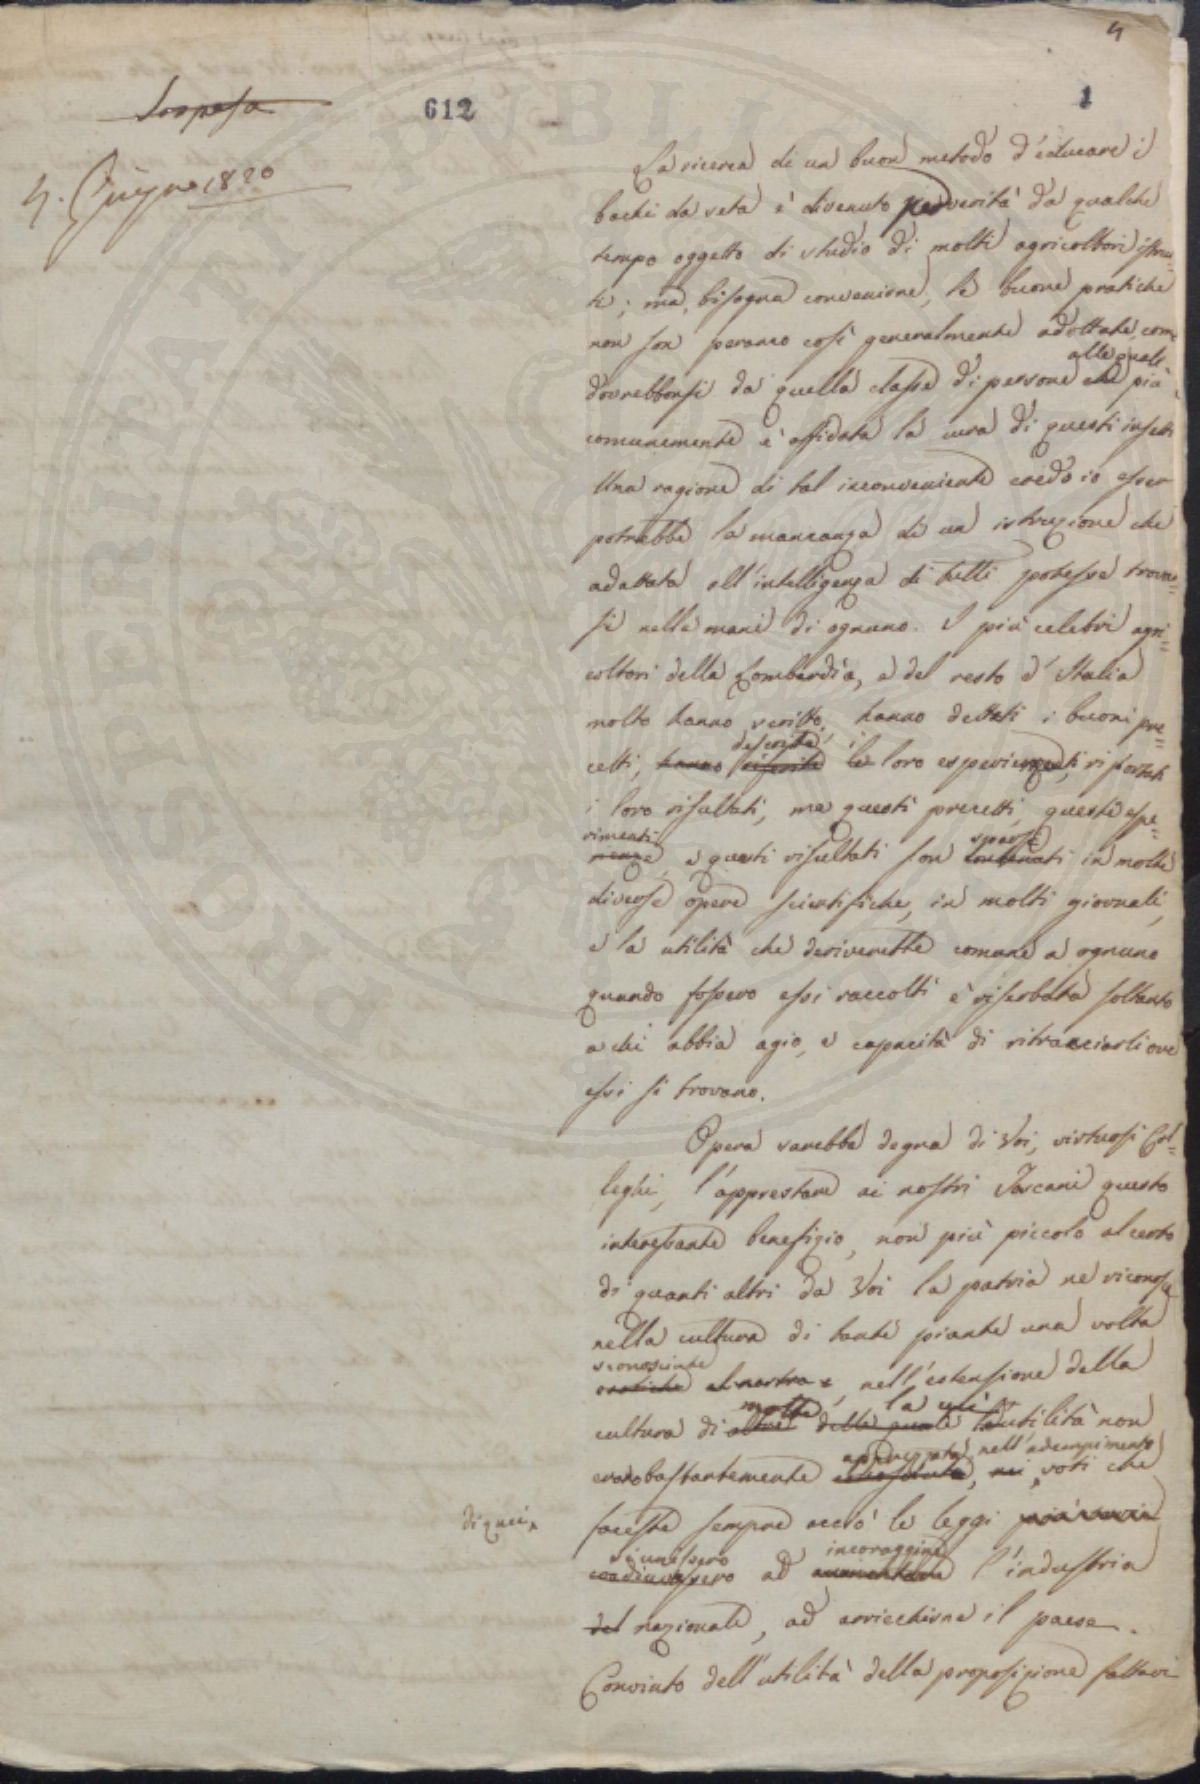 4
Sospesa
612
1
4. Giugno 1820
La ricerca di un buon metodo d'educare i
bachi da seta è divenuto per verità da qualche
tempo oggetto di studio di molti agricoltori istrui=
ti; ma, bisogna convenirne, le buone pratiche
non son peranco così generalmente adottate, come
alle quali
dovrebbonsi da quella classe di persone che più
comunemente è affidata la cura di questi insetti
Una ragione di tal inconveniente credo io esser
potrebbe la mancanza di un istruzione che
adattata all'intelligenza di tutti potesse trovar=
si nelle mani di ognuno. I più celebri agri=
coltori della Lombardia, e del resto d'Italia
molto hanno scritto, hanno dettati i buoni pre=
descritte i
cetti, hanno riferite le loro esperimenti, riportati
i loro risultati, ma questi precetti, queste espe=
rimenti sparsi
rienze, e questi risultati son contenuti in molte
diverse opere scientifiche, in molti giornali,
e la utilità che deriverebbe comune a ognuno
quando fossero essi raccolti è riserbata soltanto
a chi abbia agio, e capacità di rintracciarli ove
essi si trovano.
Opera sarebbe degna di Voi, virtuosi Col=
leghi, l'apprestare ai nostri Toscani questo
interessante benefizio, non più piccolo al certo
di quanti altri da Voi la patria ne riconosce
nella cultura di tante piante una volta
sconosciute
esotiche al nostro e, nell'estensione della
molte la cui
cultura di altre delle quale la utilità non
apprezzata nell'adempimento
era bastantemente conosciuta, nei voti che
di quei
faceste sempre acciò le leggi
si unissero incoraggire
coadiuvassero ad aumentare l'industria
del nazionale, ad arricchirne il paese.
Convinto dell'utilità della proposizione fattavi